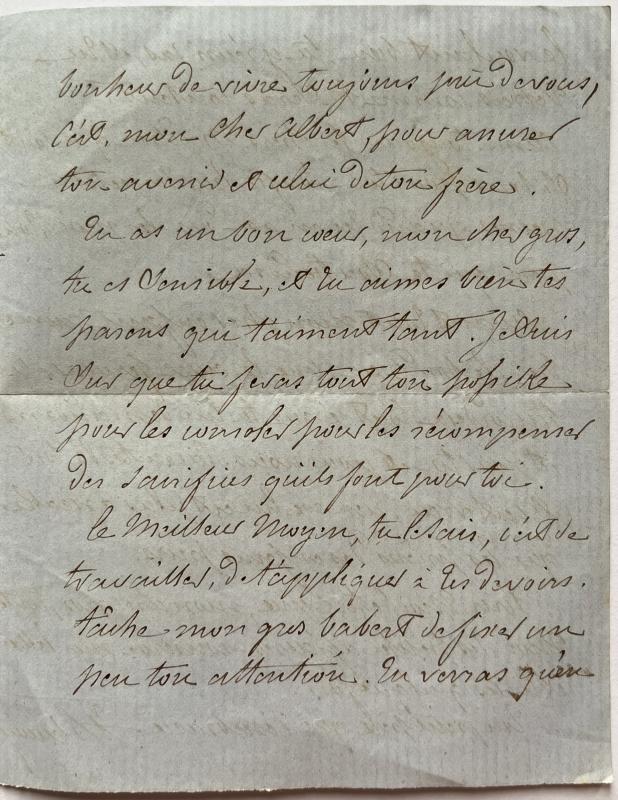 bonheur de vivre toujours près de vous,
C'est, mon cher Albert, pour assurer
ton avenir et celui de ton frère.
Tu as un bon coeur, mon cher gros,
tu es sensible, et tu aimes bien tes
parens qui t'aiment tant. Je suis
sur que tu feras tout ton possible
pour les consoler pour les récompenser
des sacrifices qu'ils font pour toi.
le meilleur moyen, tu le sais, c'est de
travailler, de t'appliquer à tes devoirs.
tâche mon gros babert de fixer un
peu ton attention. Tu verras qu'en